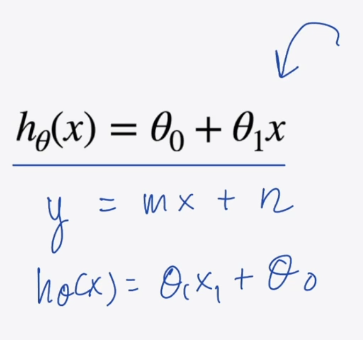 hθ(x) = θ₀ + θ₁x
y = mx + n
hθ(x) = θ₁x₁ + θ₀